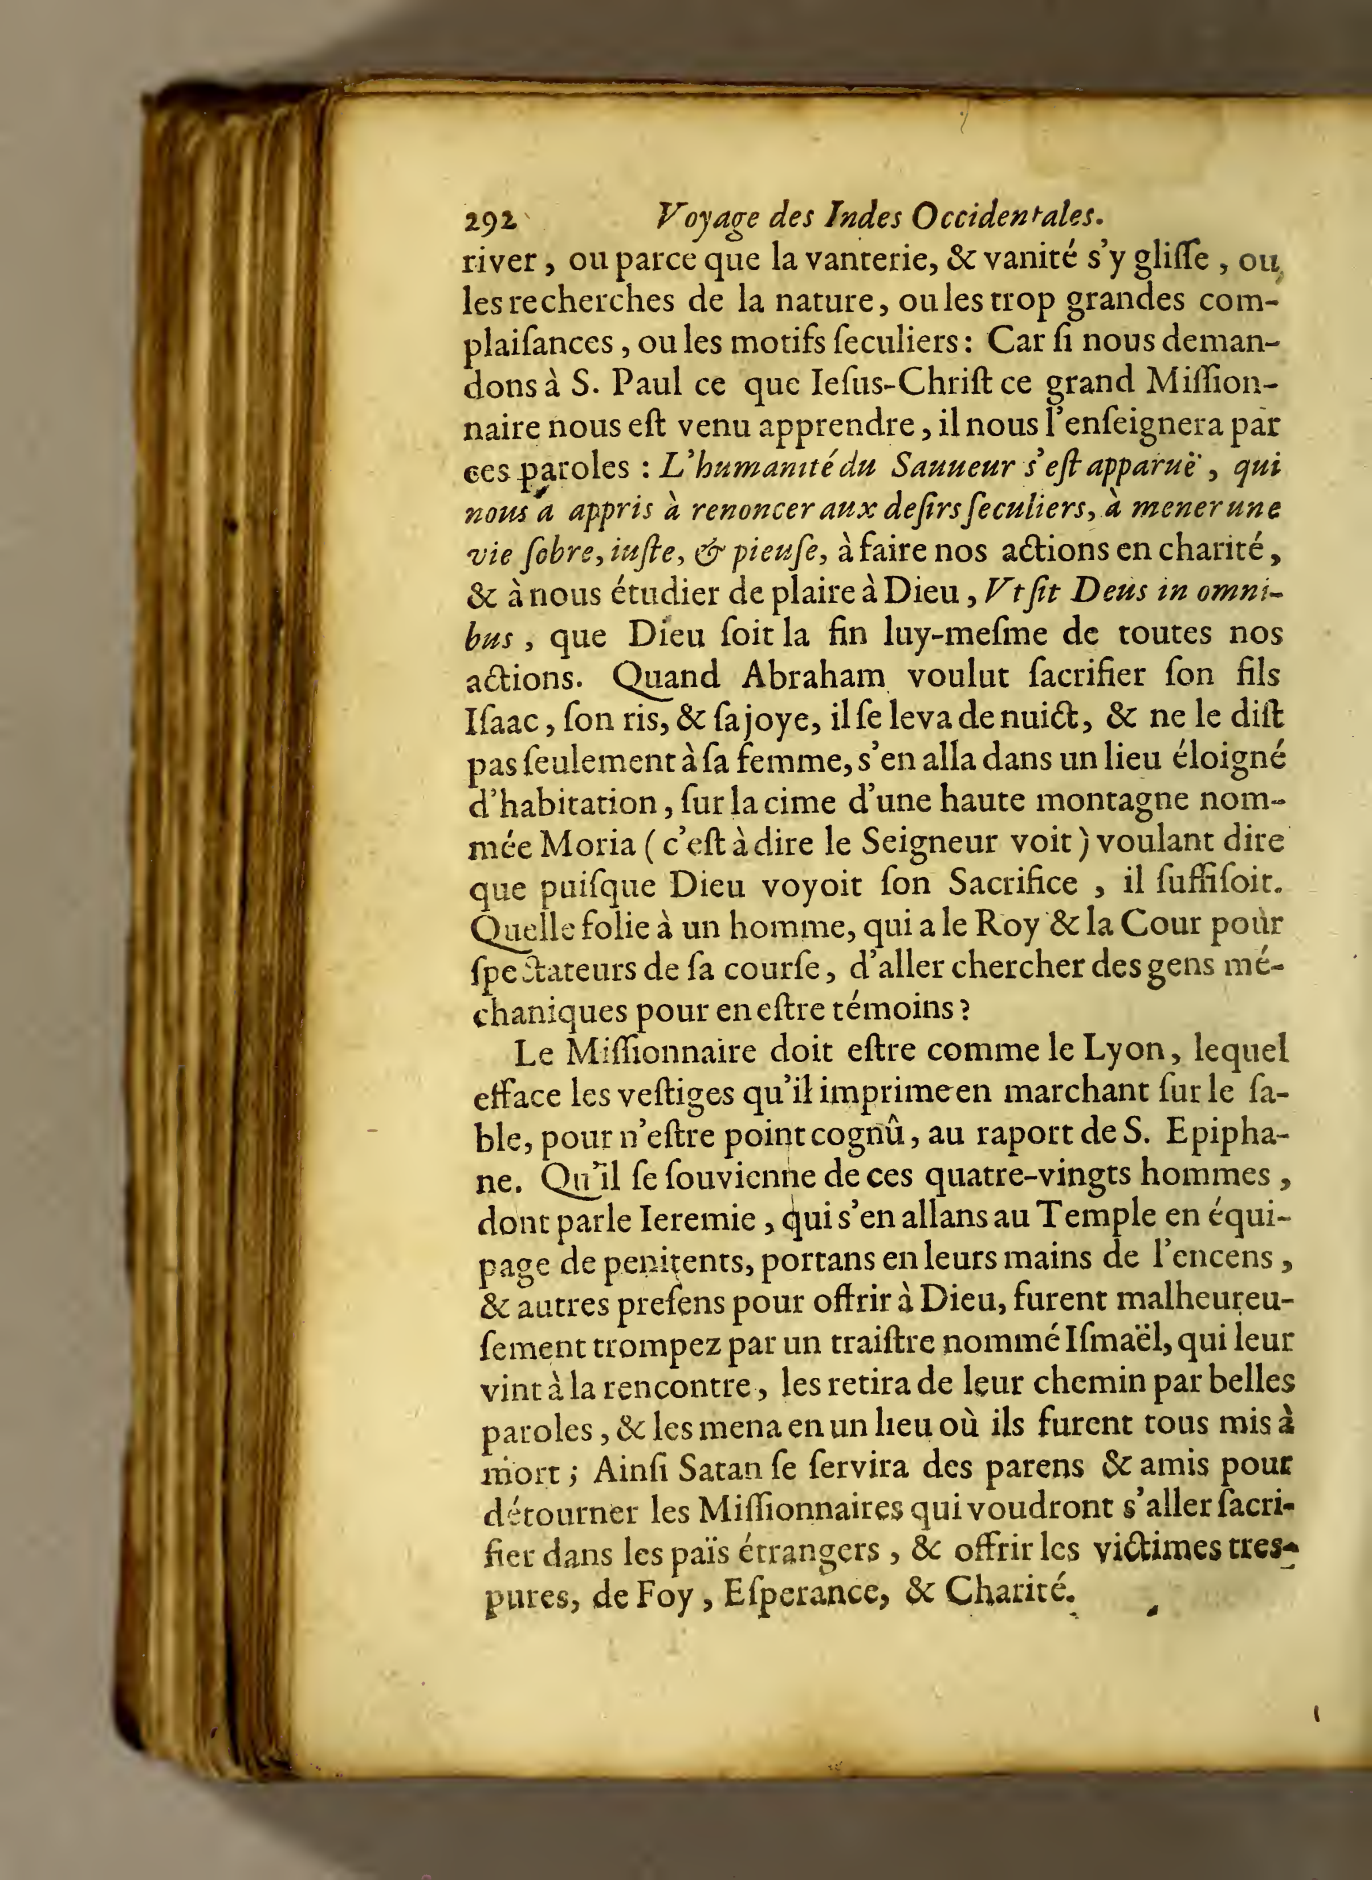 292 Voyage des Indes Occidentales.
river, ou parce que la vanterie, & vanité s'y gliſſe, ou
les recherches de la nature, ou les trop grandes com-
plaiſances, ou les motifs ſeculiers: Car ſi nous deman-
dons à S. Paul ce que Ieſus-Chriſt ce grand Miſſion-
naire nous eſt venu apprendre, il nous l'enſeignera par
ces paroles : L'humanité du Sauueur s'eſt apparuë, qui
nous a appris à renoncer aux deſirs ſeculiers, à mener une
vie ſobre, iuſte, & pieuſe, à faire nos actions en charité,
& à nous étudier de plaire à Dieu, Vt ſit Deus in omni-
bus, que Dieu ſoit la fin luy-meſme de toutes nos
actions. Quand Abraham voulut ſacrifier ſon fils
Iſaac, ſon ris, & ſa joye, il ſe leva de nuict, & ne le diſt
pas ſeulement à ſa femme, s'en alla dans un lieu éloigné
d'habitation, ſur la cime d'une haute montagne nom-
mée Moria ( c'eſt à dire le Seigneur voit ) voulant dire
que puiſque Dieu voyoit ſon Sacrifice, il ſuffiſoit.
Quelle folie à un homme, qui a le Roy & la Cour pour
ſpectateurs de ſa courſe, d'aller chercher des gens mé-
chaniques pour en eſtre témoins?
Le Miſſionnaire doit eſtre comme le Lyon, lequel
efface les veſtiges qu'il imprime en marchant ſur le ſa-
ble, pour n'eſtre point cognû, au raport de S. Epipha-
ne. Qu'il ſe ſouvienne de ces quatre-vingts hommes,
dont parle Ieremie, qui s'en allans au Temple en équi-
page de penitents, portans en leurs mains de l'encens,
& autres preſens pour offrir à Dieu, furent malheureu-
ſement trompez par un traiſtre nommé Iſmaël, qui leur
vint à la rencontre, les retira de leur chemin par belles
paroles, & les mena en un lieu où ils furent tous mis à
mort; Ainſi Satan ſe ſervira des parens & amis pour
détourner les Miſſionnaires qui voudront s'aller ſacri-
fier dans les païs étrangers, & offrir les victimes tres-
pures, de Foy, Eſperance, & Charité.